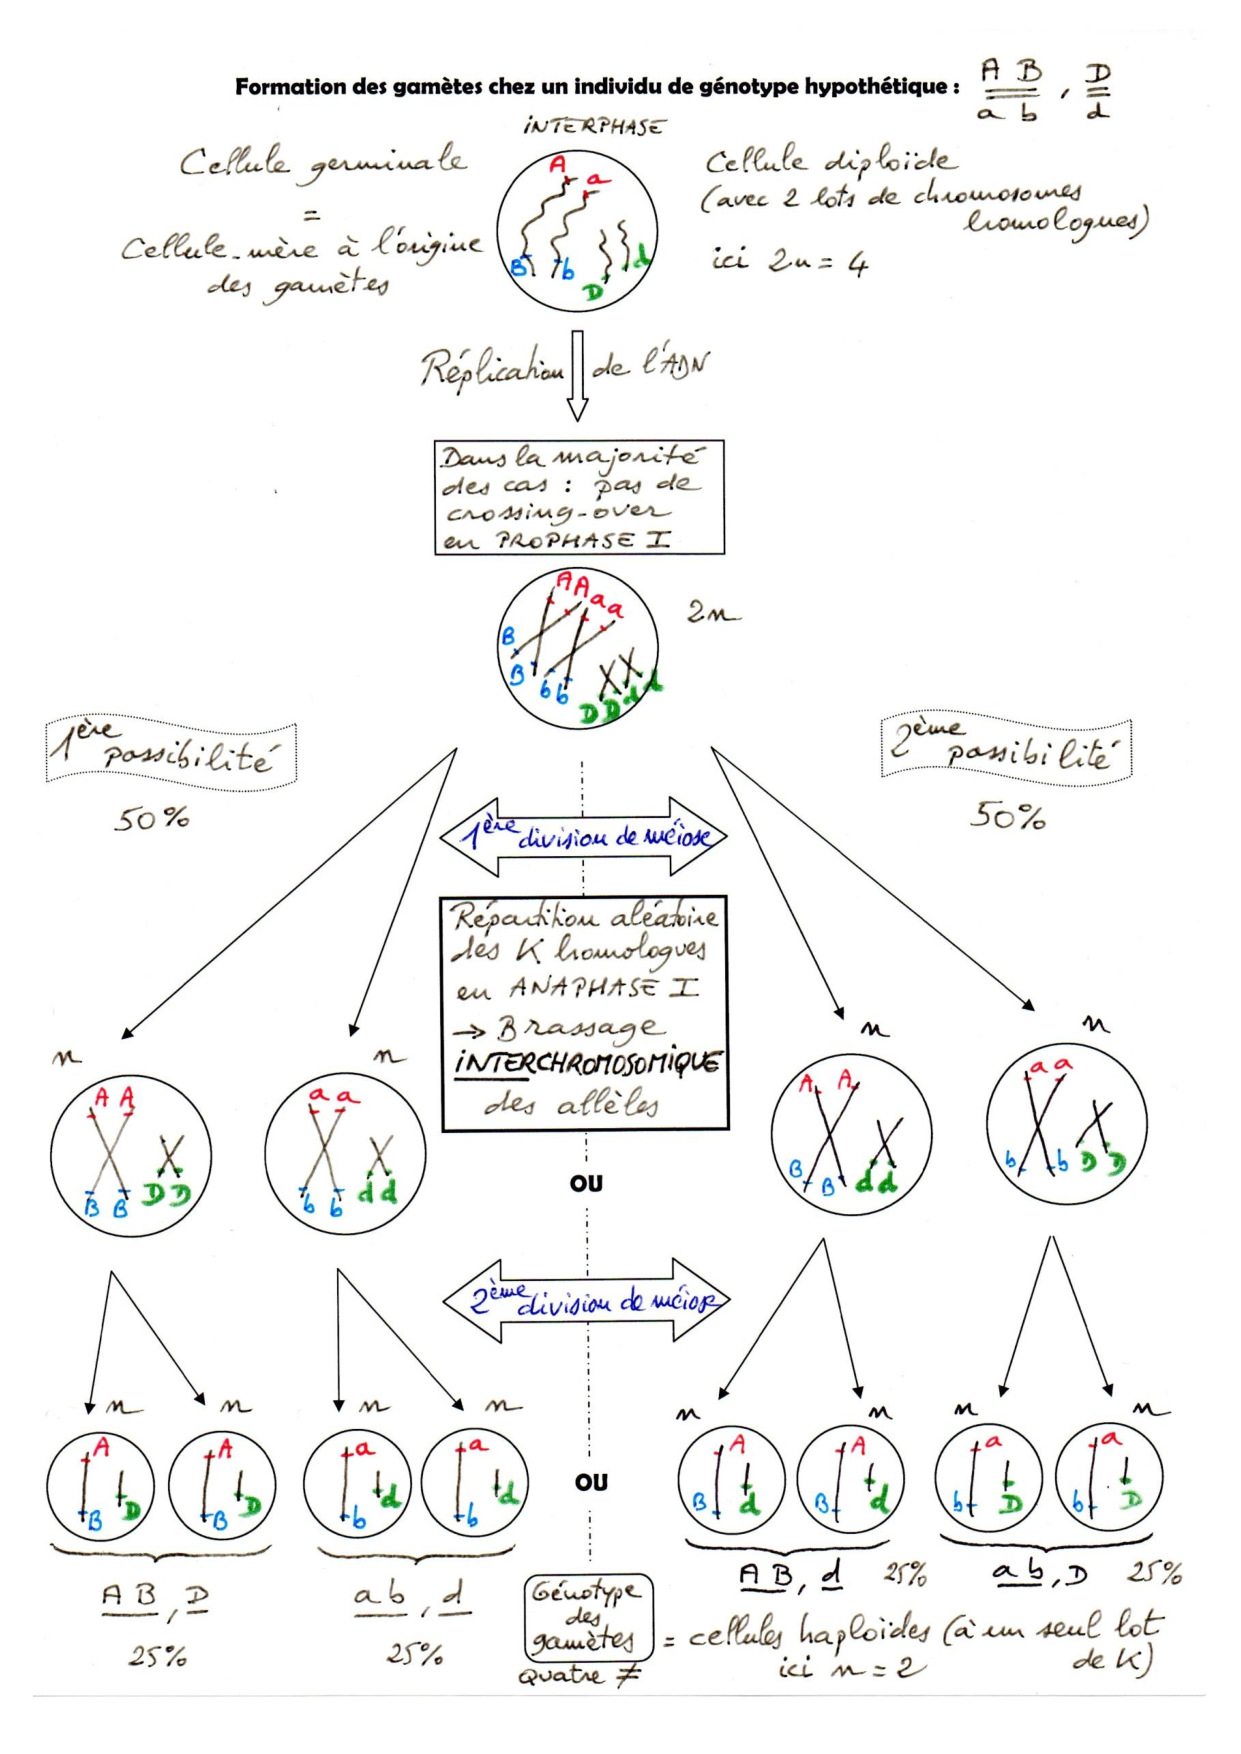 Formation des gamètes chez un individu de génotype hypothétique : A B , D
a b d
iNTERPHASE
Cellule germinale
=
Cellule-mère à l'origine
des gamètes
A a
B b D d
Cellule diploïde
(avec 2 lots de chromosomes
homologues)
ici 2n = 4
Réplication de l'ADN
Dans la majorité
des cas : pas de
crossing-over
en PROPHASE I
A A a a
B B b b D D d d
2n
1ère possibilité
50%
2ème possibilité
50%
1ère division de méiose
Répartition aléatoire
des K homologues
en ANAPHASE I
→ Brassage
iNTERCHROMOSOMiQUE
des allèles
n n n n
A A
B B D D
a a
b b d d
A A
B B d d
a a
b b D D
OU
2ème division de méiose
n n n n n n n n
A B D
A B D
a b d
a b d
OU
A B d
A B d
a b D
a b D
A B , D
25%
a b , d
25%
A B, d 25%
a b, D 25%
Génotype
des
gamètes
Quatre ≠
= cellules haploïdes (à un seul lot
de K)
ici n = 2